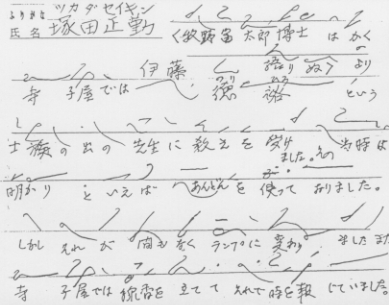 ふりがな ツカダセイキン
氏名 塚田正勤
く牧野富太郎博士はかく
語りぬう より
寺子屋では 伊藤 徳裕 という
士族の出の先生に教えを受けました。その当時は
明かり といえば あんどんを使っておりました。
しかし それが 間もなくランプに変わりました また
寺子屋では線香を立てて それで時を報じていました。